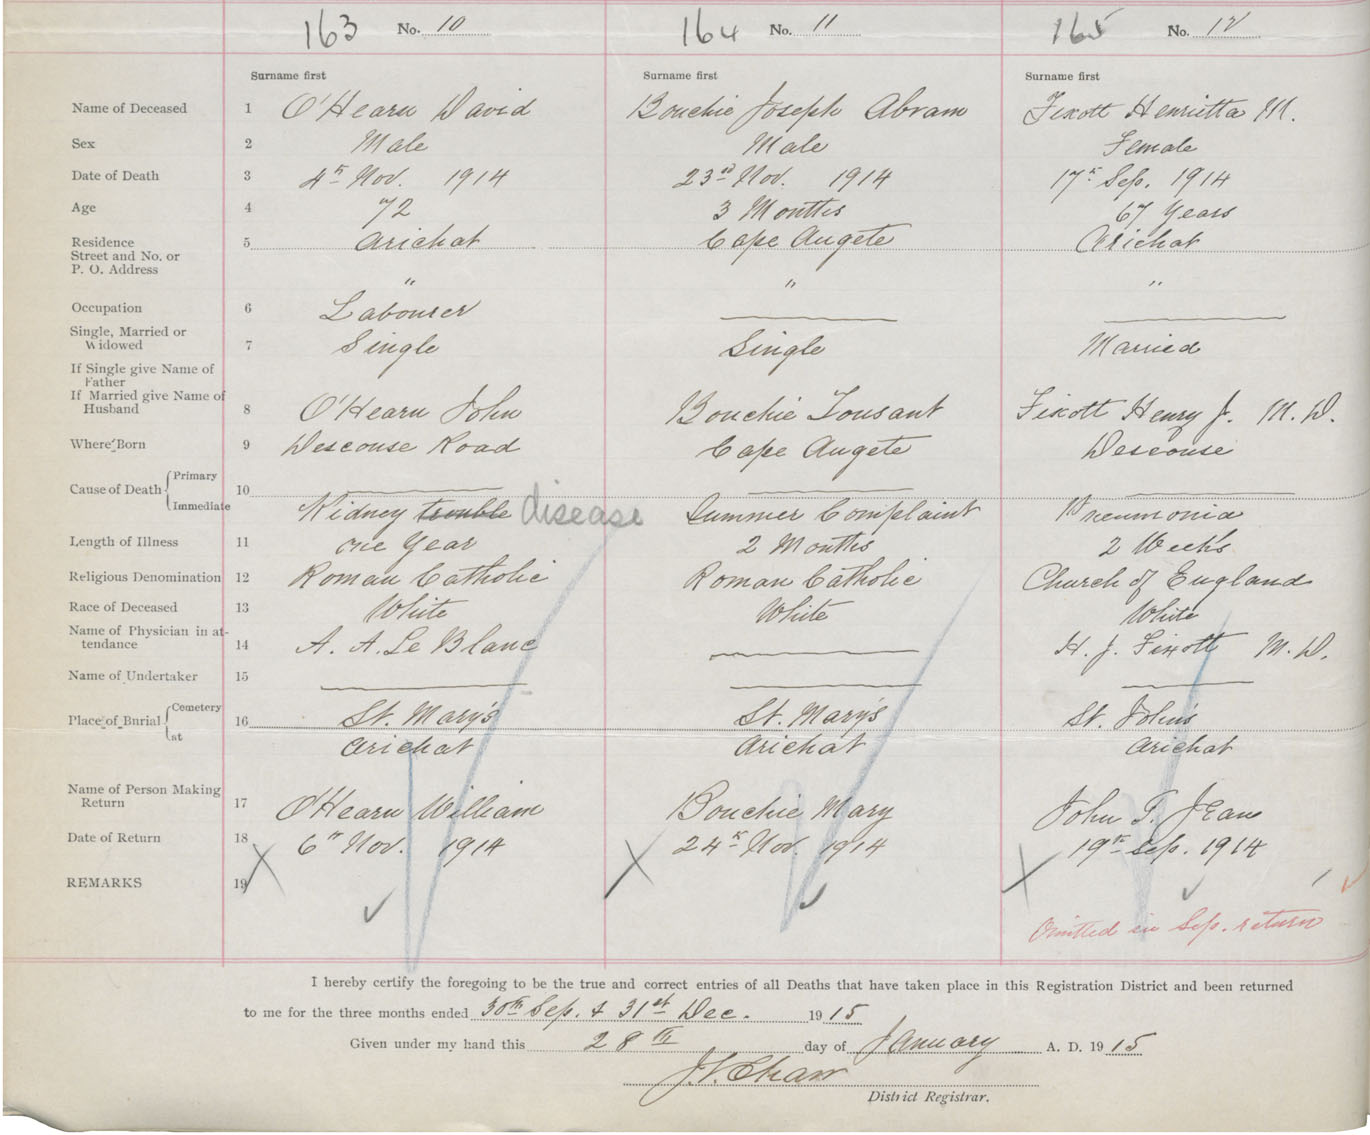 163 No. 10 164 No. 11 165 No. 12
Surname first Surname first Surname first
Name of Deceased 1 O'Hearn David Bouchie Joseph Abram Fixott Henrietta M.
Sex 2 Male Male Female
Date of Death 3 4th Nov. 1914 23rd Nov. 1914 17th Sep. 1914
Age 4 72 3 Months 67 Years
Residence 5 Arichat Cape Augete Arichat
Street and No. or
P. O. Address " " "
Occupation 6 Labourer
Single, Married or
Widowed 7 Single Single Married
If Single give Name of
Father
If Married give Name of
Husband 8 O'Hearn John Bouchie Tousant Fixott Henry J. M. D.
Where Born 9 Descouse Road Cape Augete Descouse
Cause of Death Primary 10
Immediate Kidney trouble disease Summer Complaint Pneumonia
Length of Illness 11 one Year 2 Months 2 Weeks
Religious Denomination 12 Roman Catholic Roman Catholic Church of England
Race of Deceased 13 White White White
Name of Physician in at-
tendance 14 A. A. Le Blanc H. J. Fixott M. D.
Name of Undertaker 15
Place of Burial Cemetery 16 St. Mary's St. Mary's St. John's
at Arichat Arichat Arichat
Name of Person Making
Return 17 O'Hearn William Bouchie Mary John T. Jean
Date of Return 18 6th Nov. 1914 24th Nov. 1914 19th Sep. 1914
REMARKS 19
Omitted in Sep. return
I hereby certify the foregoing to be the true and correct entries of all Deaths that have taken place in this Registration District and been returned
to me for the three months ended 30th Sep. & 31st Dec. 1915
Given under my hand this 28th day of January A. D. 1915
District Registrar.